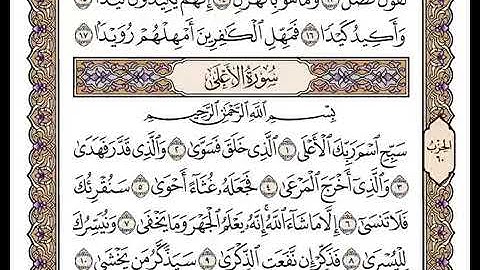 لَقَوْلٌ فَصْلٌ ١٣ وَمَا هُوَ بِالْهَزْلِ ١٤ إِنَّهُمْ يَكِيدُونَ كَيْدًا ١٥
وَأَكِيدُ كَيْدًا ١٦ فَمَهِّلِ الْكَٰفِرِينَ أَمْهِلْهُمْ رُوَيْدًا ١٧
سُورَةُ الأَعْلَىٰ
بِسْمِ اللَّهِ الرَّحْمَٰنِ الرَّحِيمِ
سَبِّحِ اسْمَ رَبِّكَ الْأَعْلَى ١ الَّذِي خَلَقَ فَسَوَّىٰ ٢ وَالَّذِي قَدَّرَ فَهَدَىٰ
٣ وَالَّذِي أَخْرَجَ الْمَرْعَىٰ ٤ فَجَعَلَهُ غُثَاءً أَحْوَىٰ ٥ سَنُقْرِئُكَ
فَلَا تَنسَىٰ ٦ إِلَّا مَا شَاءَ اللَّهُ إِنَّهُ يَعْلَمُ الْجَهْرَ وَمَا يَخْفَىٰ ٧ وَنُيَسِّرُكَ
لِلْيُسْرَىٰ ٨ فَذَكِّرْ إِن نَّفَعَتِ الذِّكْرَىٰ ٩ سَيَذَّكَّرُ مَن يَخْشَىٰ ١٠
الحزب
٦٠